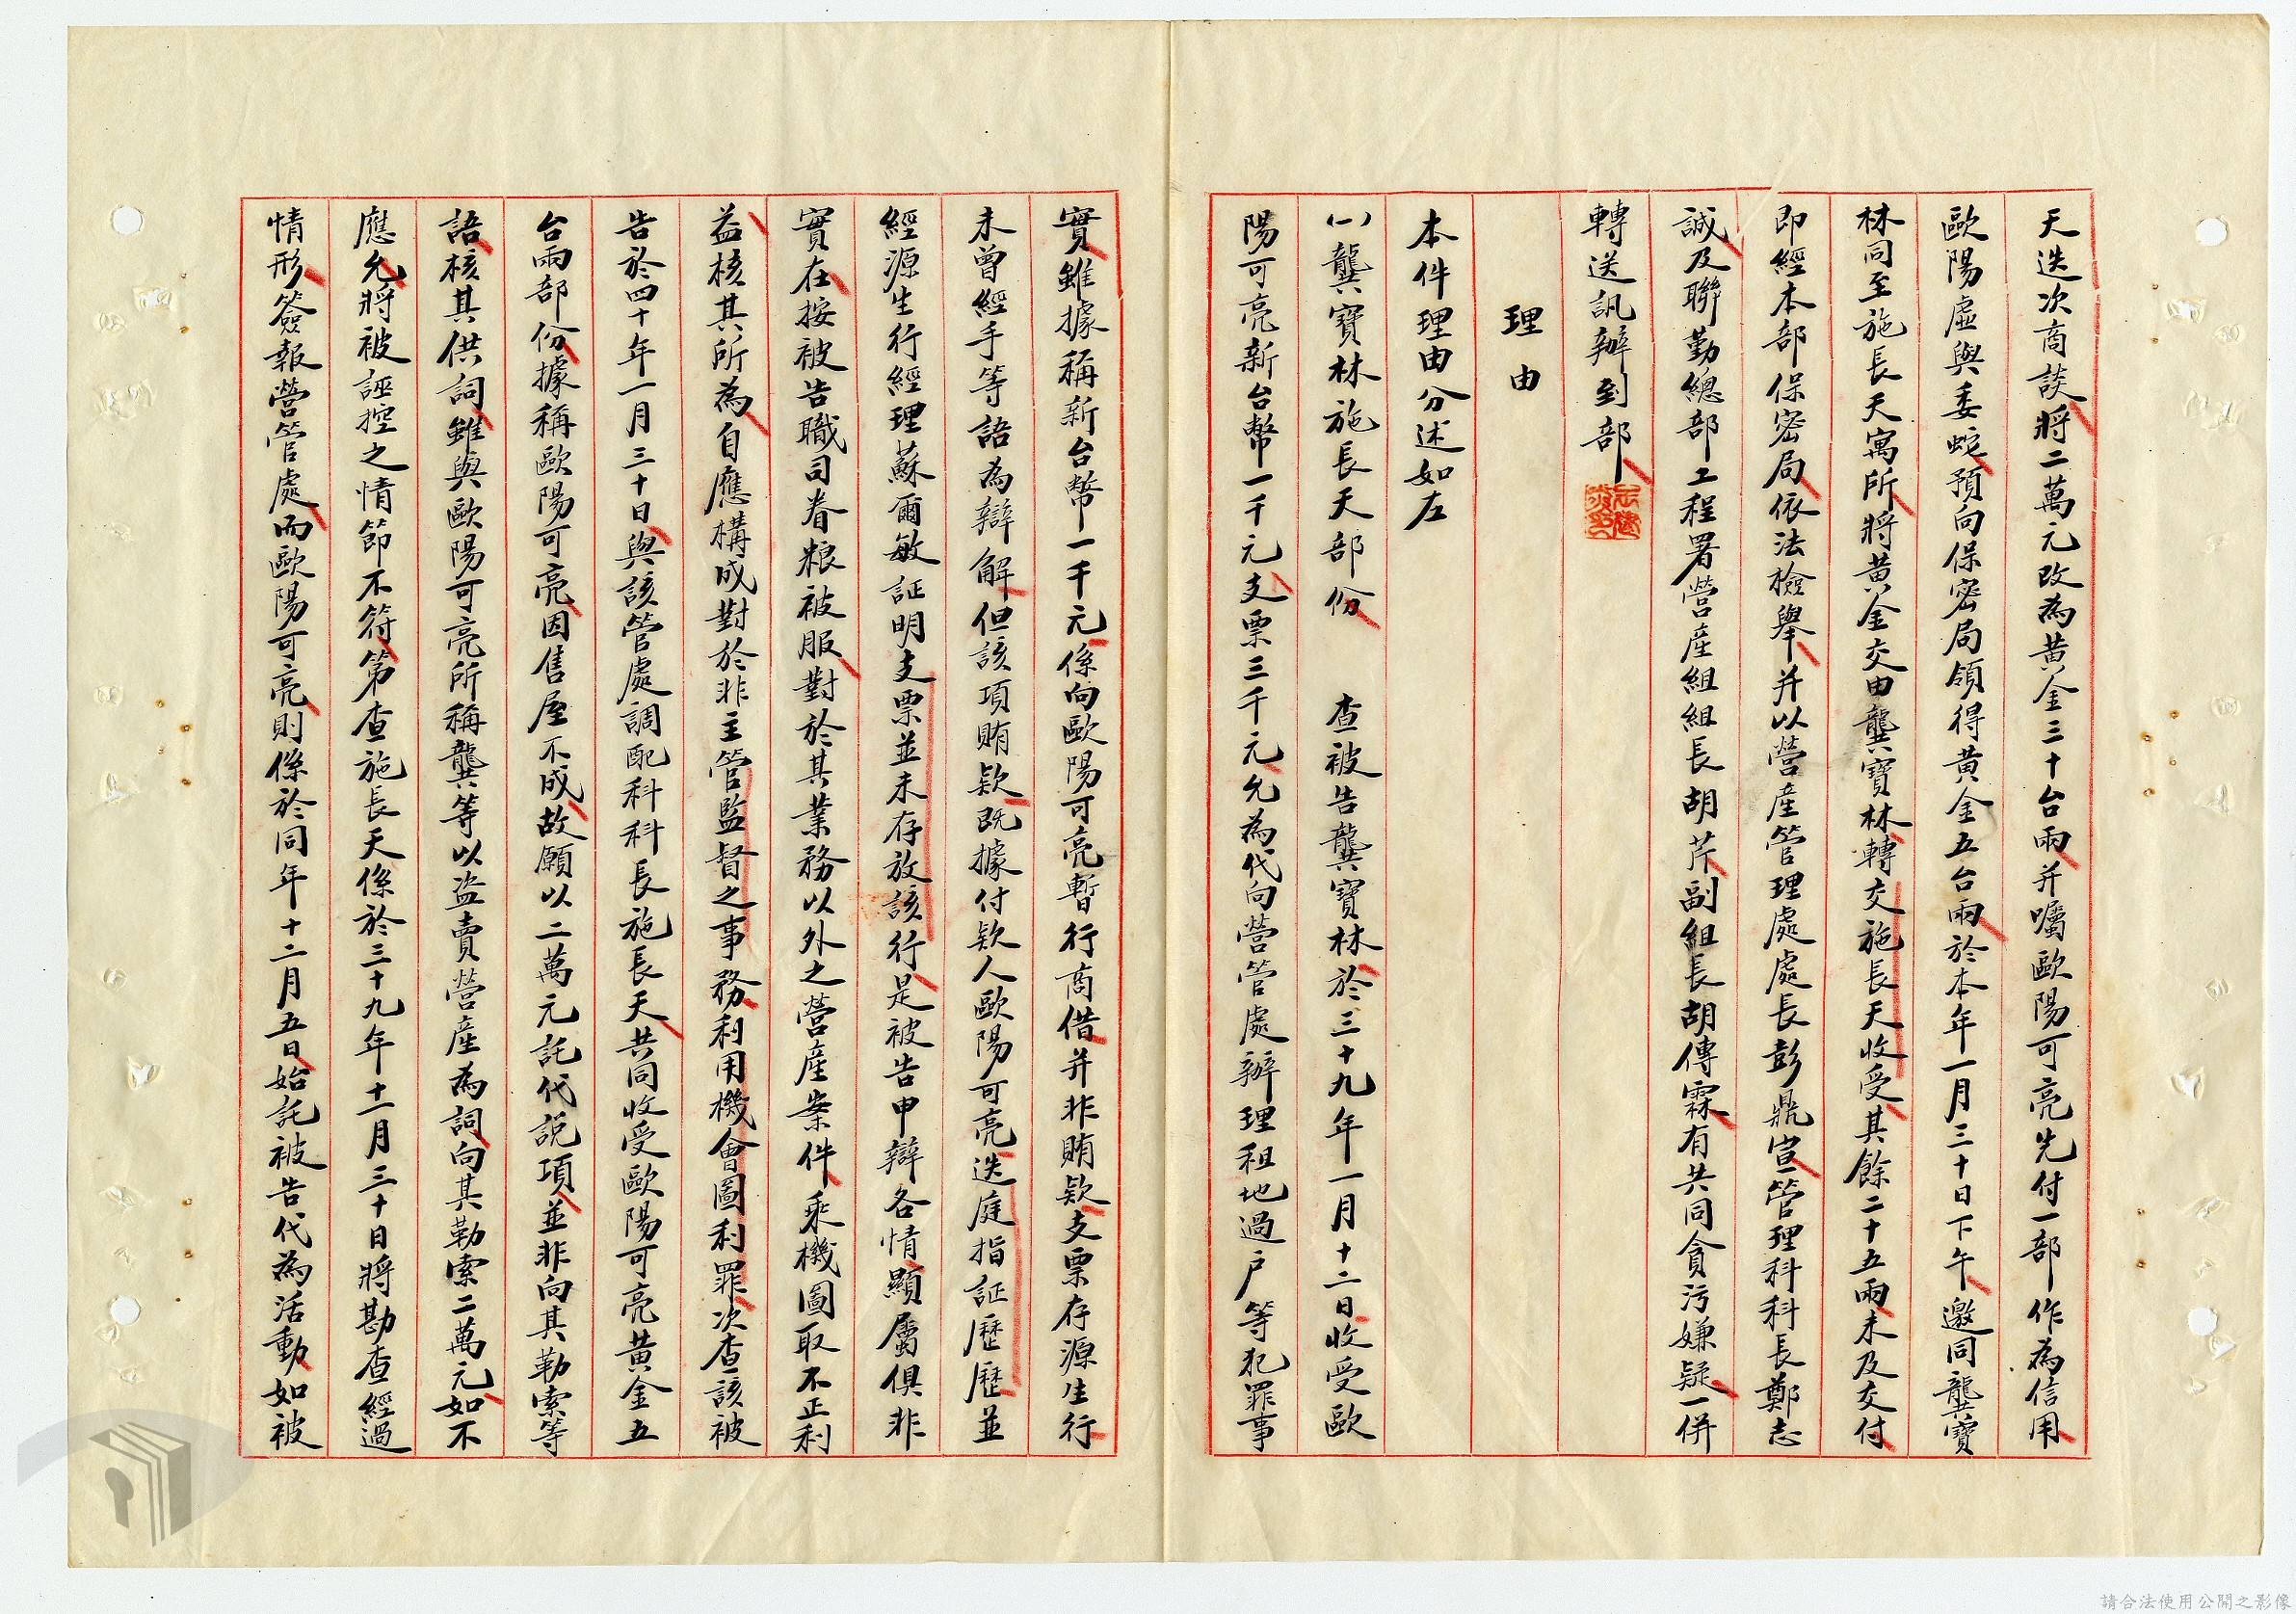 天迭次商談將二萬元改為黃金三十台兩并囑歐陽可亮先付一部作為信用
歐陽虛與委蛇預向保密局領得黃金五台兩於本年一月三十日下午邀同龔寶
林同至施長天寓所將黃金交由龔寶林轉交施長天收受其餘二十五兩未及交付
即經本部保密局依法檢舉并以營產管理處處長彭鼎宣管理科科長鄭志
誠及聯勤總部工程署營產組組長胡芹副組長胡傳霖有共同貪污嫌疑一併
轉送訊辦到部
理由
本件理由分述如左
(一)龔寶林施長天部份 查被告龔寶林於三十九年一月十二日收受歐
陽可亮新台幣一千元支票三千元允為代向營管處辦理租地過戶等犯罪事
實雖據稱新台幣一千元係向歐陽可亮暫行商借并非賄款支票存源生行
未曾經手等語為辯解但該項賄款既據付款人歐陽可亮迭庭指証歷歷並
經源生行經理蘇爾敏証明支票並未存放該行是被告申辯各情顯屬俱非
實在按被告職司眷粮被服對於其業務以外之營產案件乘機圖取不正利
益核其所為自應構成對於非主管監督之事務利用機會圖利罪次查該被
告於四十年一月三十日與該管處調配科科長施長天共同收受歐陽可亮黃金五
台兩部份據稱歐陽可亮因售屋不成故願以二萬元託代說項並非向其勒索等
語核其供詞雖與歐陽可亮所稱龔等以盜賣營產為詞向其勒索二萬元如不
應允將被誣控之情節不符第查施長天係於三十九年十一月三十日將勘查經過
情形簽報營管處而歐陽可亮則係於同年十二月五日始託被告代為活動如被
請合法使用公開之影像